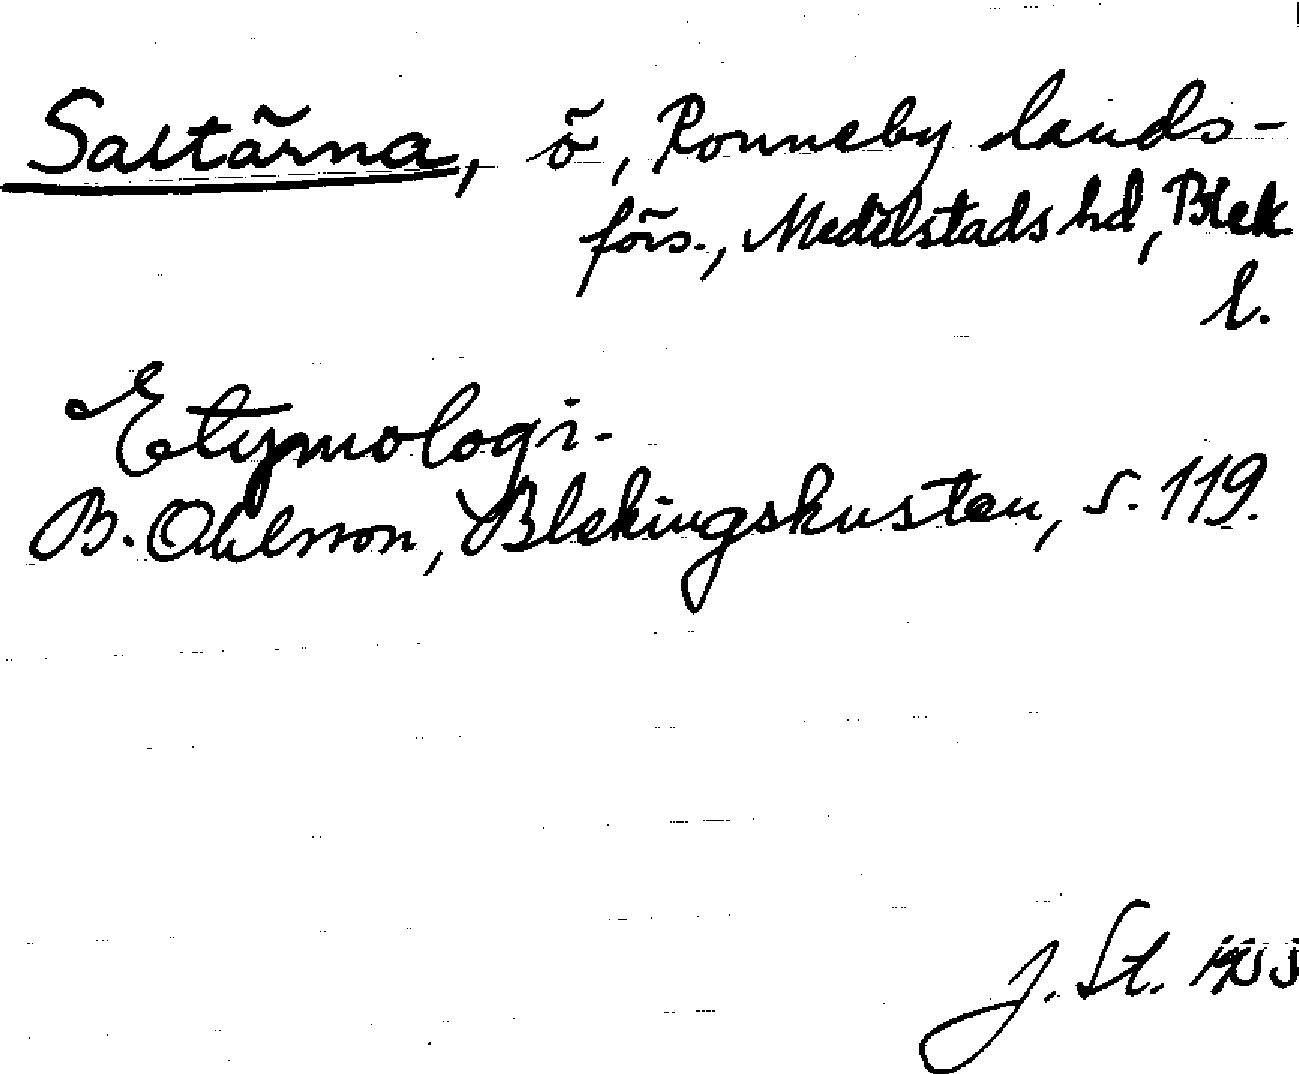 Saltärna, ö, Ronneby lands-
förs., Medelstads hd, Blek
l.
Etymologi.
B. Ohlsson, Blekingskusten, s. 119.
J. St.